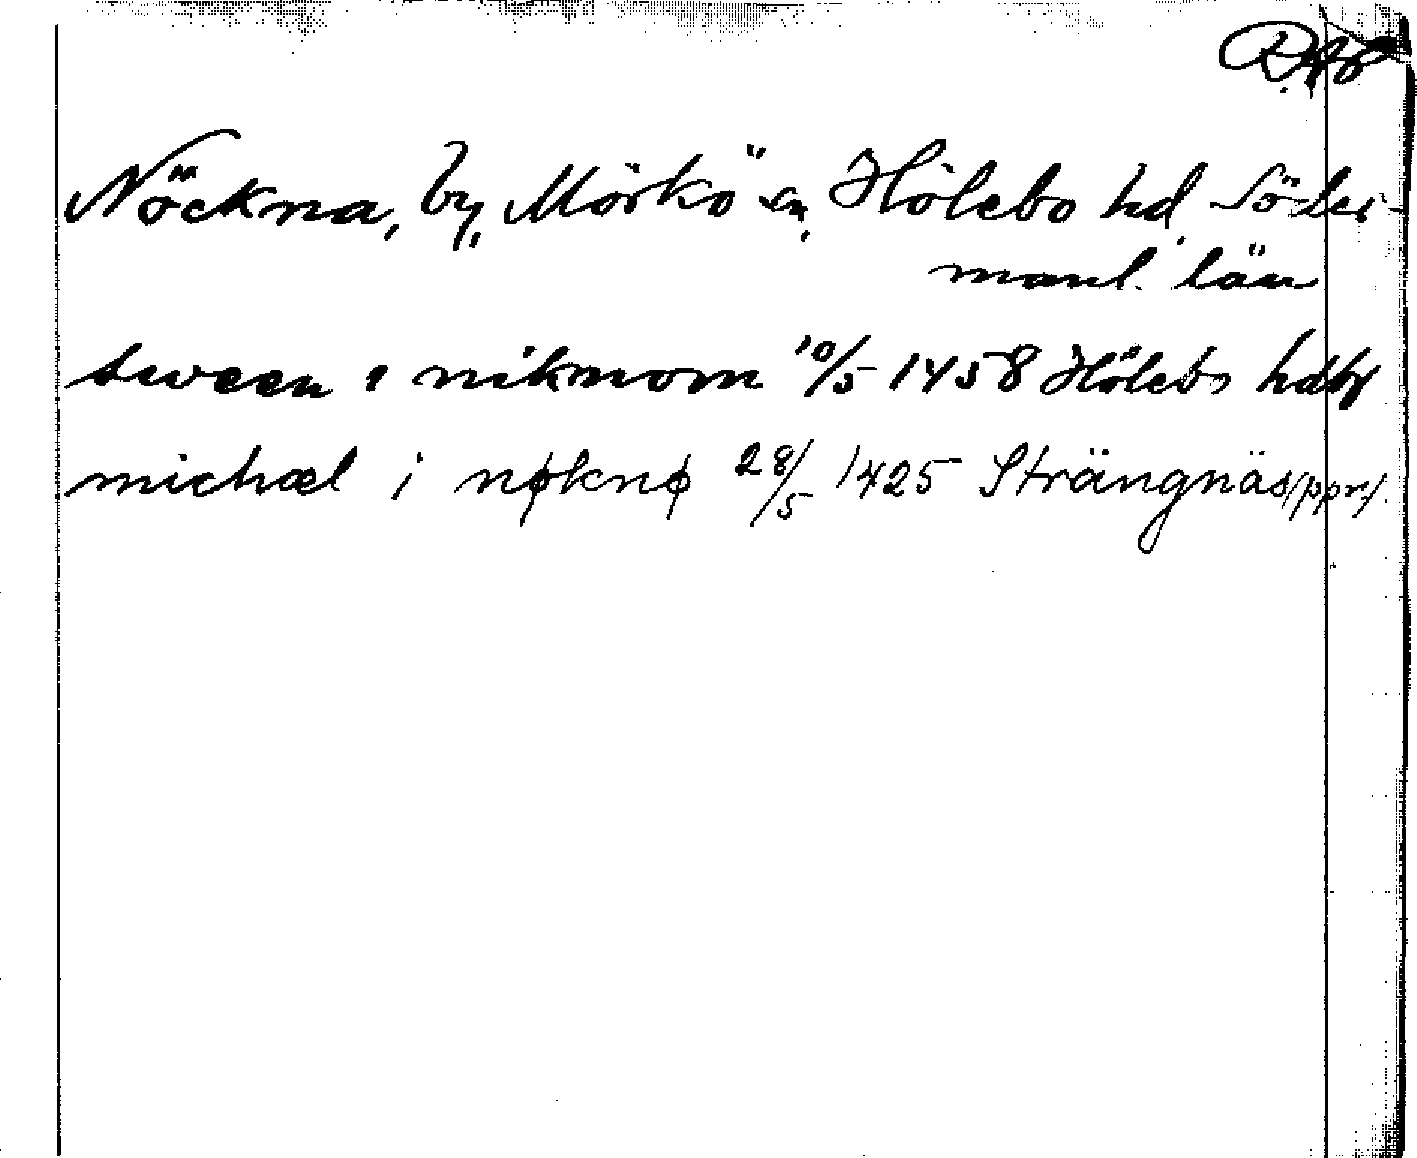 Nöckna, by, Mörkö sn, Hölebo hd, Söder-
manl. län
sween i niknom 10/5 1458 Hölebo hdbr
michæl i nøknø 28/5 1425 Strängnäs (ppr).